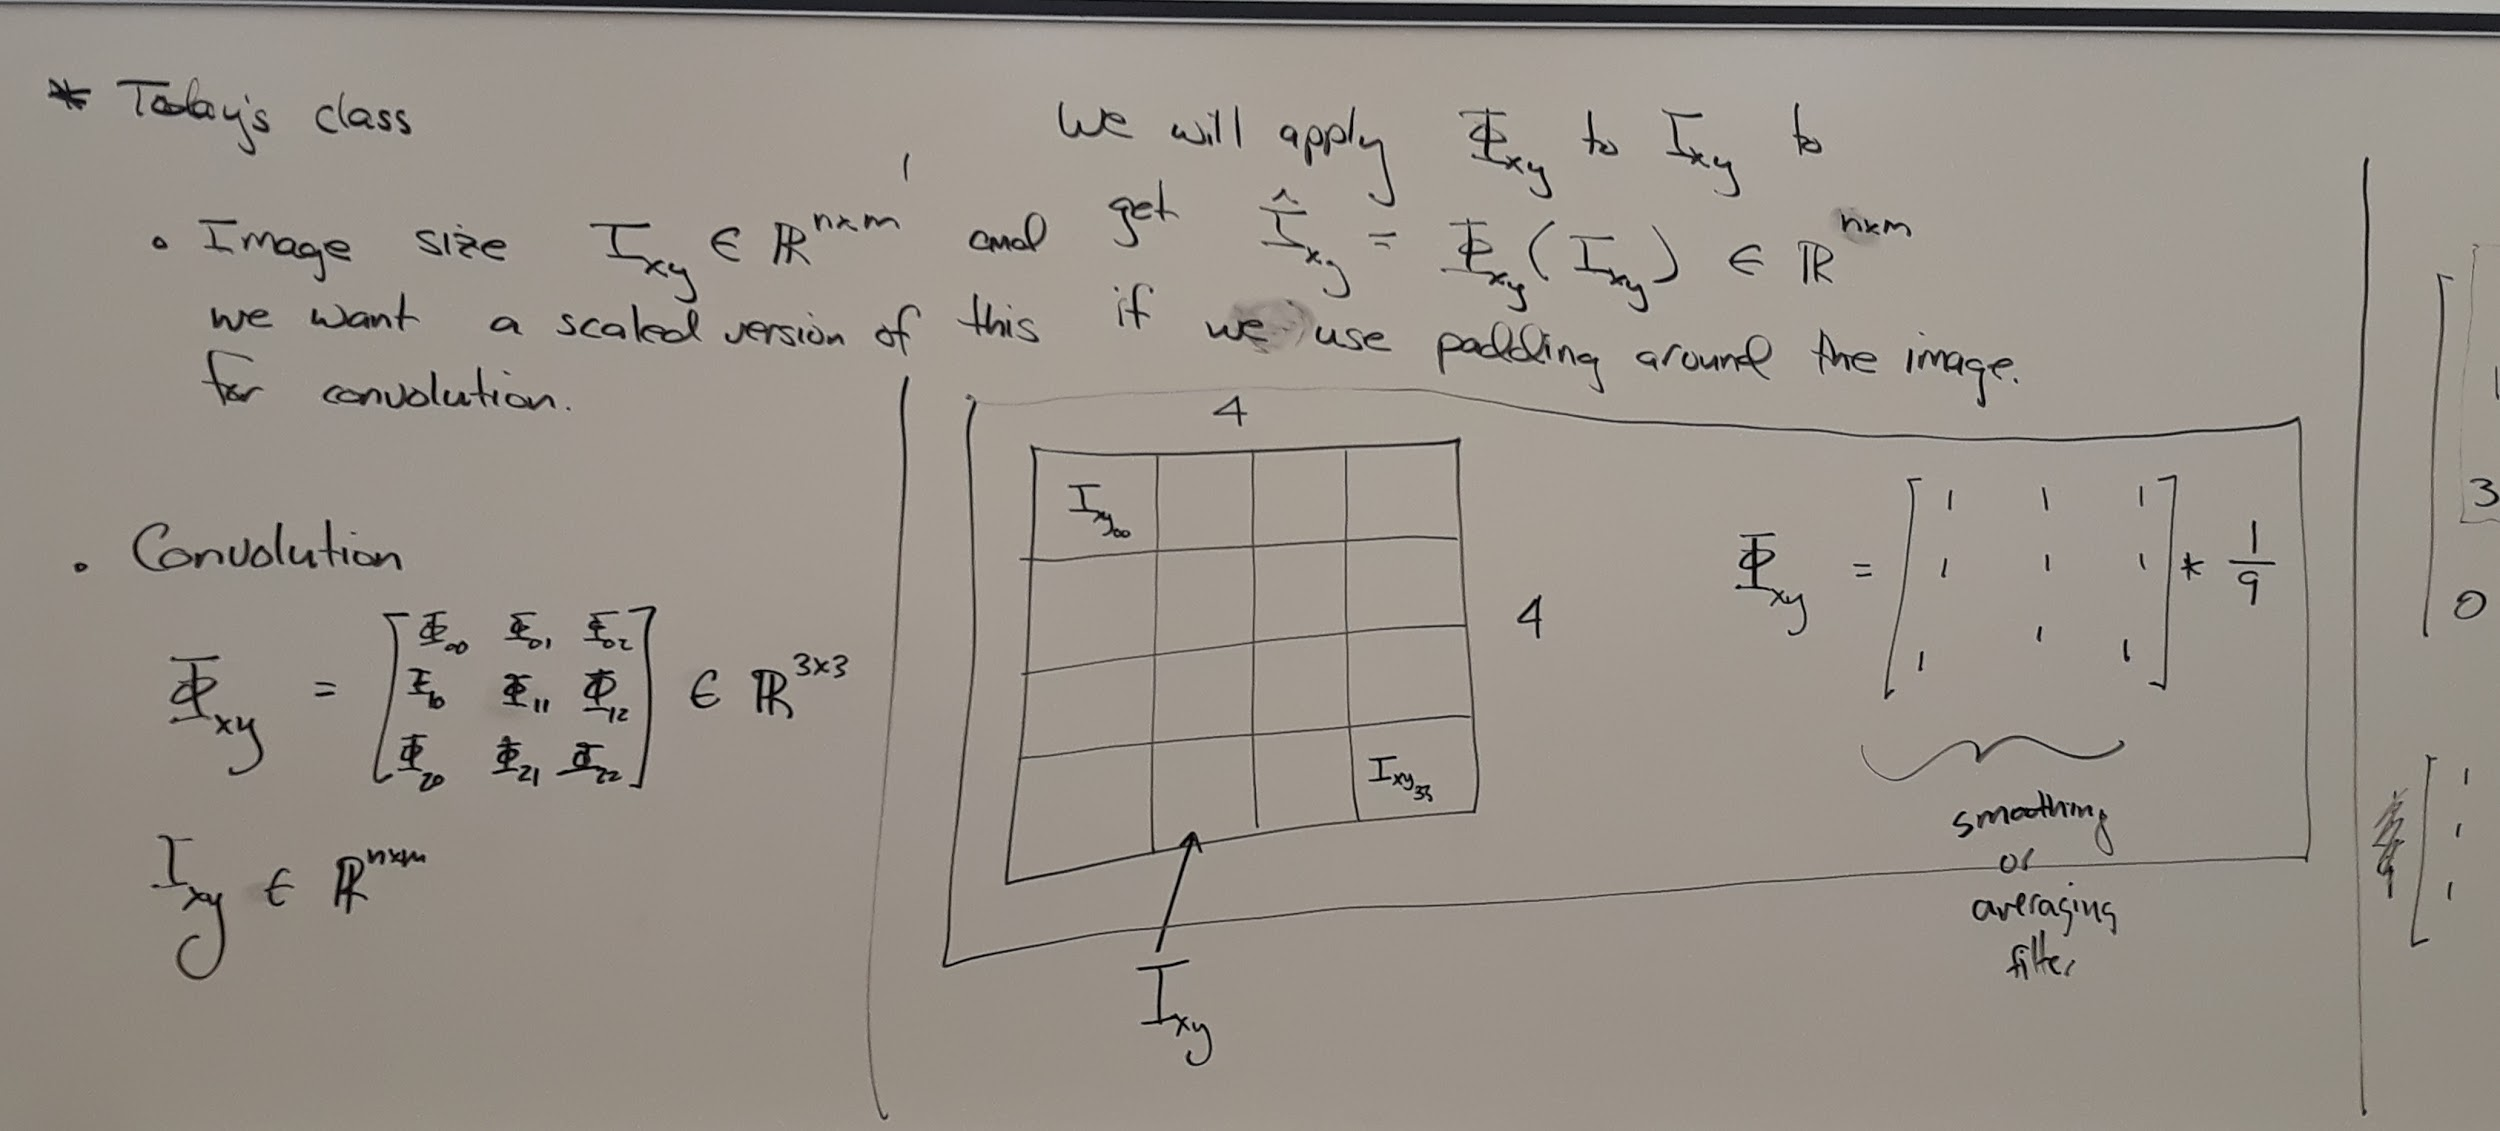 * Today's class
• Image size I_xy ∈ ℝ^{n×m}
we want a scaled version of this
for convolution.
• Convolution
Φ_xy = [Φ_00 Φ_01 Φ_02
Φ_10 Φ_11 Φ_12
Φ_20 Φ_21 Φ_22] ∈ ℝ^{3×3}
I_xy ∈ ℝ^{n×m}
We will apply Φ_xy to I_xy to
and get Î_xy = Φ_xy(I_xy) ∈ ℝ^{n×m}
if we use padding around the image.
4
I_xy_00
4
I_xy_33
I_xy
Φ_xy = [1 1 1
1 1 1
1 1 1] * 1/9
smoothing
or
averaging
filter
1
3
0
1
1
1